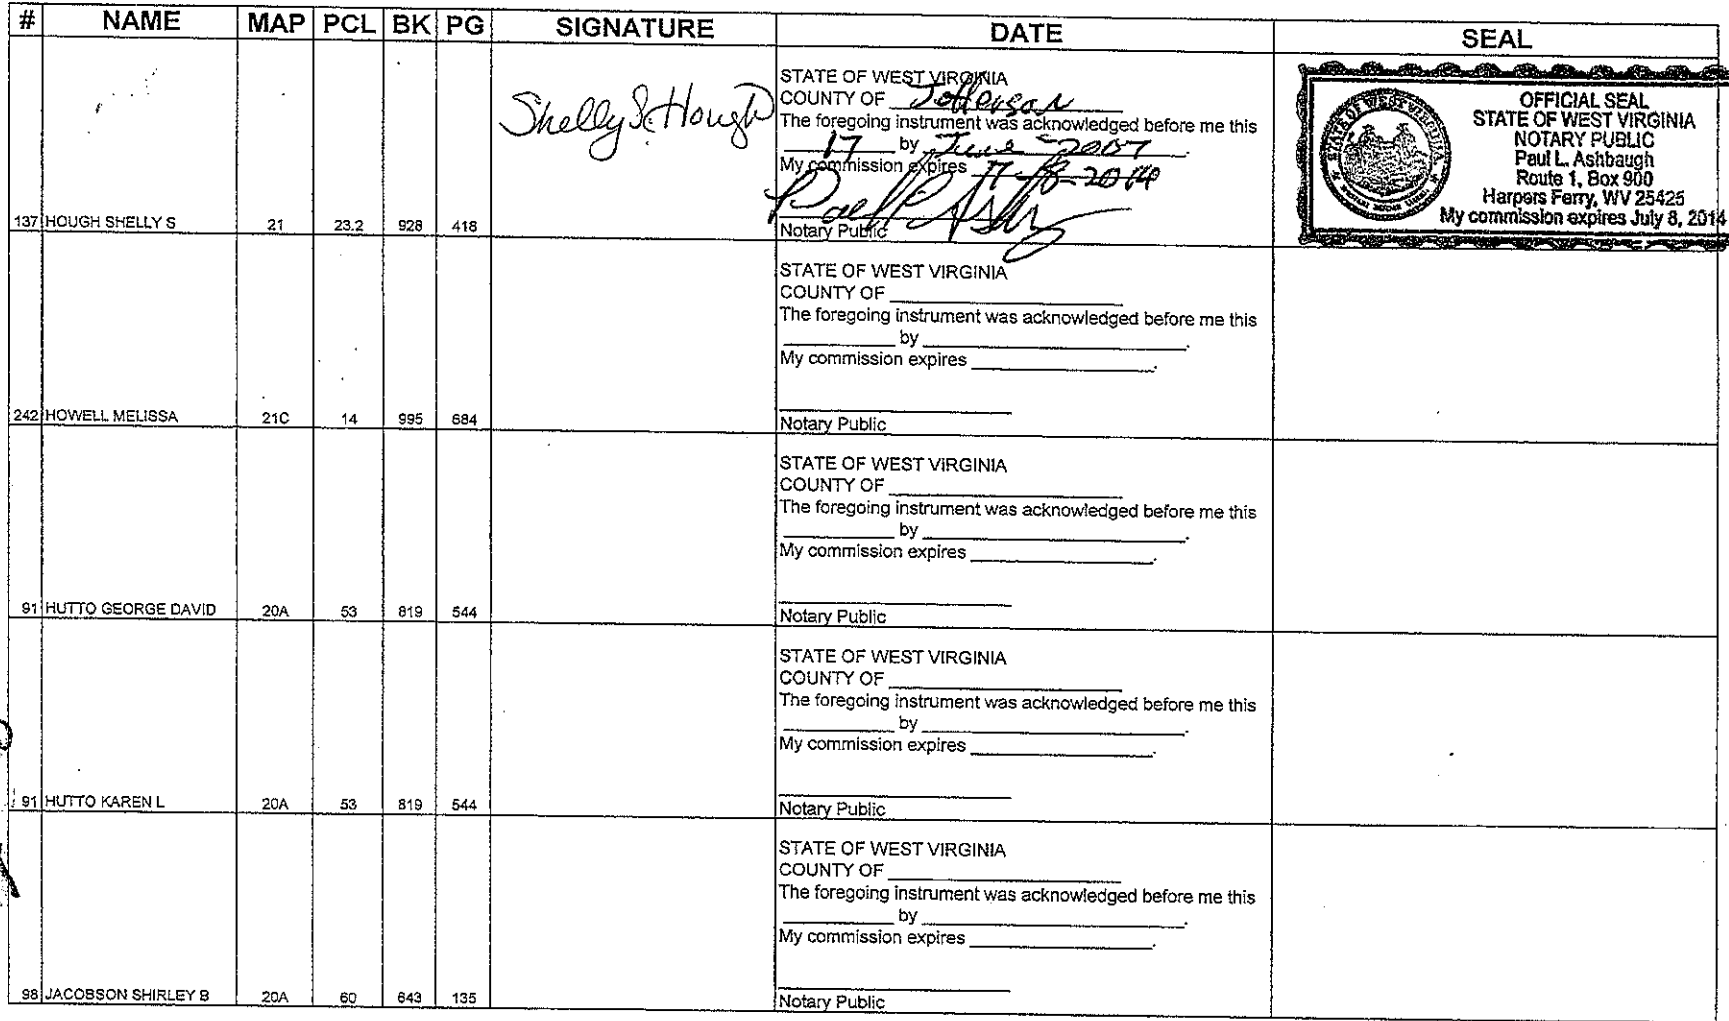 # NAME MAP PCL BK PG SIGNATURE DATE SEAL
137 HOUGH SHELLY S 21 23.2 928 418
Shelly S. Hough
STATE OF WEST VIRGINIA
COUNTY OF Jefferson
The foregoing instrument was acknowledged before me this
17 by June 2007.
My commission expires 7-8-2014
Notary Public
OFFICIAL SEAL
STATE OF WEST VIRGINIA
NOTARY PUBLIC
Paul L. Ashbaugh
Route 1, Box 900
Harpers Ferry, WV 25425
My commission expires July 8, 2014
242 HOWELL MELISSA 21C 14 995 684
STATE OF WEST VIRGINIA
COUNTY OF
The foregoing instrument was acknowledged before me this
by .
My commission expires .
Notary Public
91 HUTTO GEORGE DAVID 20A 53 819 544
STATE OF WEST VIRGINIA
COUNTY OF
The foregoing instrument was acknowledged before me this
by .
My commission expires .
Notary Public
91 HUTTO KAREN L 20A 53 819 544
STATE OF WEST VIRGINIA
COUNTY OF
The foregoing instrument was acknowledged before me this
by .
My commission expires .
Notary Public
98 JACOBSON SHIRLEY B 20A 60 643 135
STATE OF WEST VIRGINIA
COUNTY OF
The foregoing instrument was acknowledged before me this
by .
My commission expires .
Notary Public